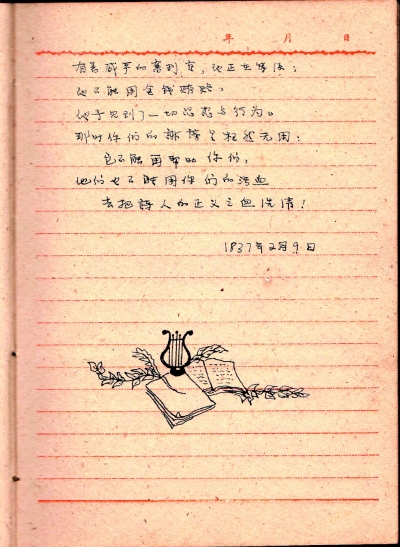 年 月 日
有着威严的審判官,他正在等候;
他不能用金钱賄賂,
他予見到了一切思想与行为。
那时你们的誹謗是枉然无用:
它不能再帮助你们,
他们也不能用你们的污血
去把詩人的正义之血洗清!
1837年2月9日